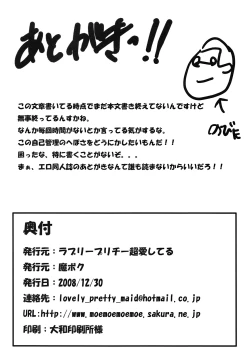 あとがきっ!!
のびた
この文章書いてる時点でまだ本文書き終えてないんですけど
無事終ってるんすかね。
なんか毎回時間がないとか言ってる気がするな。
この自己管理のへぼさをどうにかしたいもんだ!!
困ったな、特に書くことがないぞ...
まぁ、エロ同人誌のあとがきなんて誰も読まないからいいだろ!!
奥付
発行元:ラブリープリチー超愛してる
発行元:魔ポク
発行日:2008/12/30
連絡先:lovely_pretty_maid@hotmail.co.jp
URL:http://www.moemoemoemoe.sakura.ne.jp
印刷:大和印刷所様